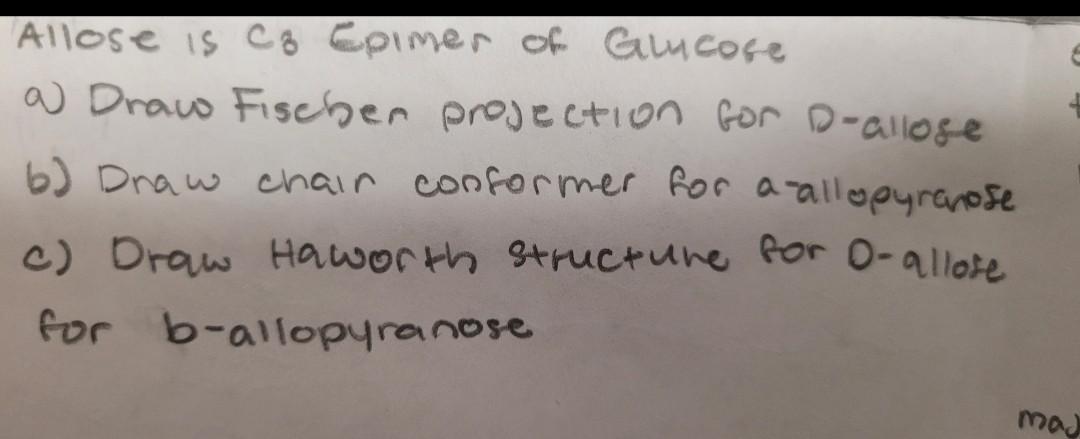 Allose is C3 Epimer of Glucose
a) Draw Fischer projection for D-allose
b) Draw chair conformer for a-allopyranose
c) Draw Haworth structure for D-allose
for b-allopyranose